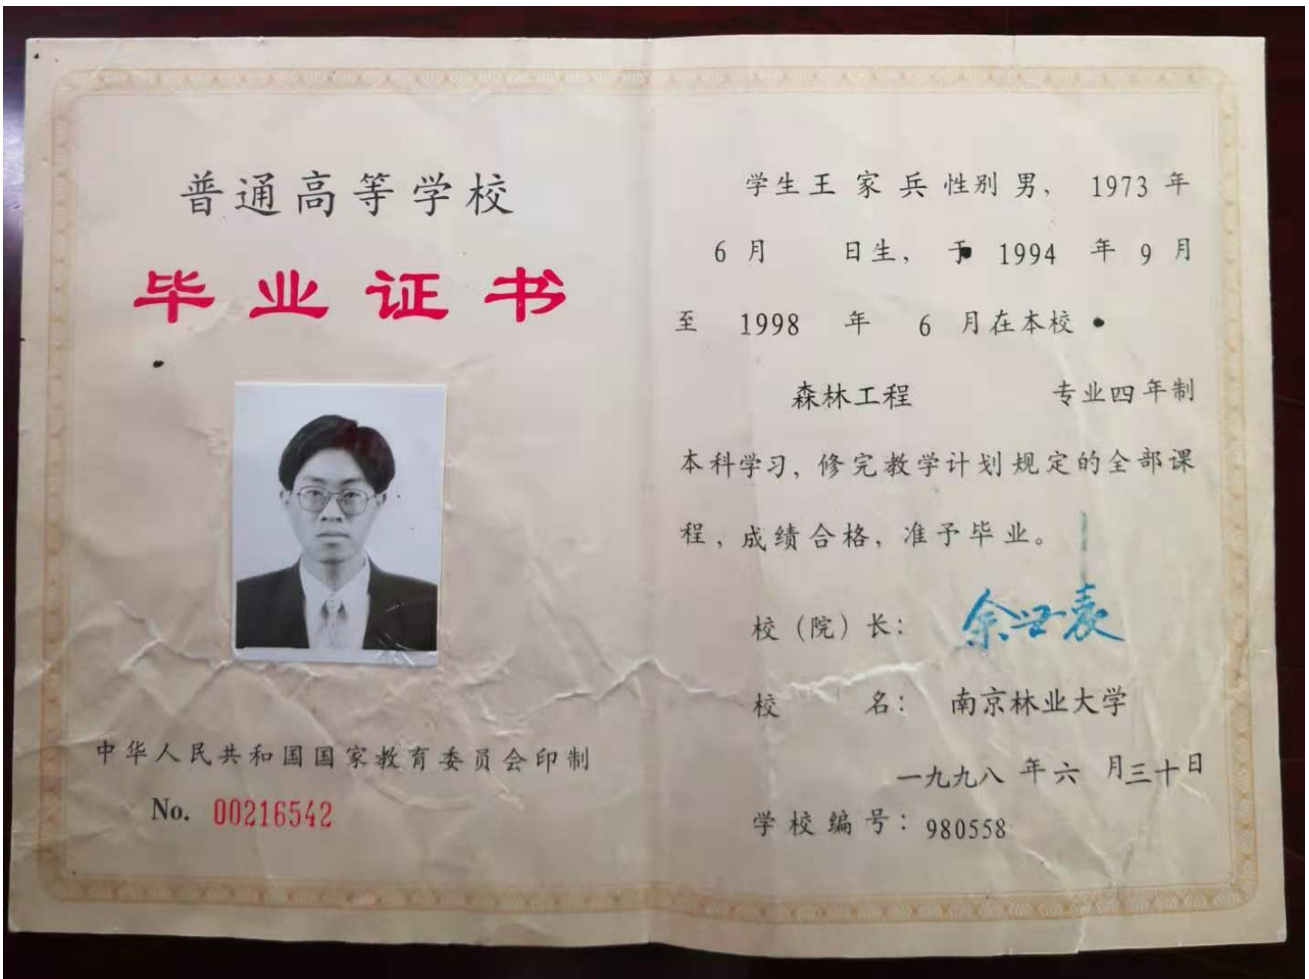 普通高等学校
毕业证书
中华人民共和国国家教育委员会印制
No. 00216542
学生王家兵性别男, 1973年
6月 日生, 于 1994 年 9 月
至 1998 年 6 月在本校
森林工程 专业四年制
本科学习, 修完教学计划规定的全部课
程, 成绩合格, 准予毕业。
校(院)长: 余世袁
校 名: 南京林业大学
一九九八年六月三十日
学校编号: 980558